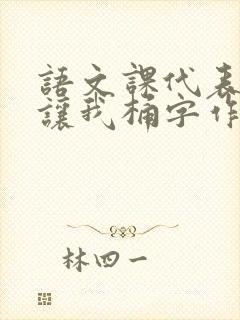 語文課代表
讓我桶字作
林四一